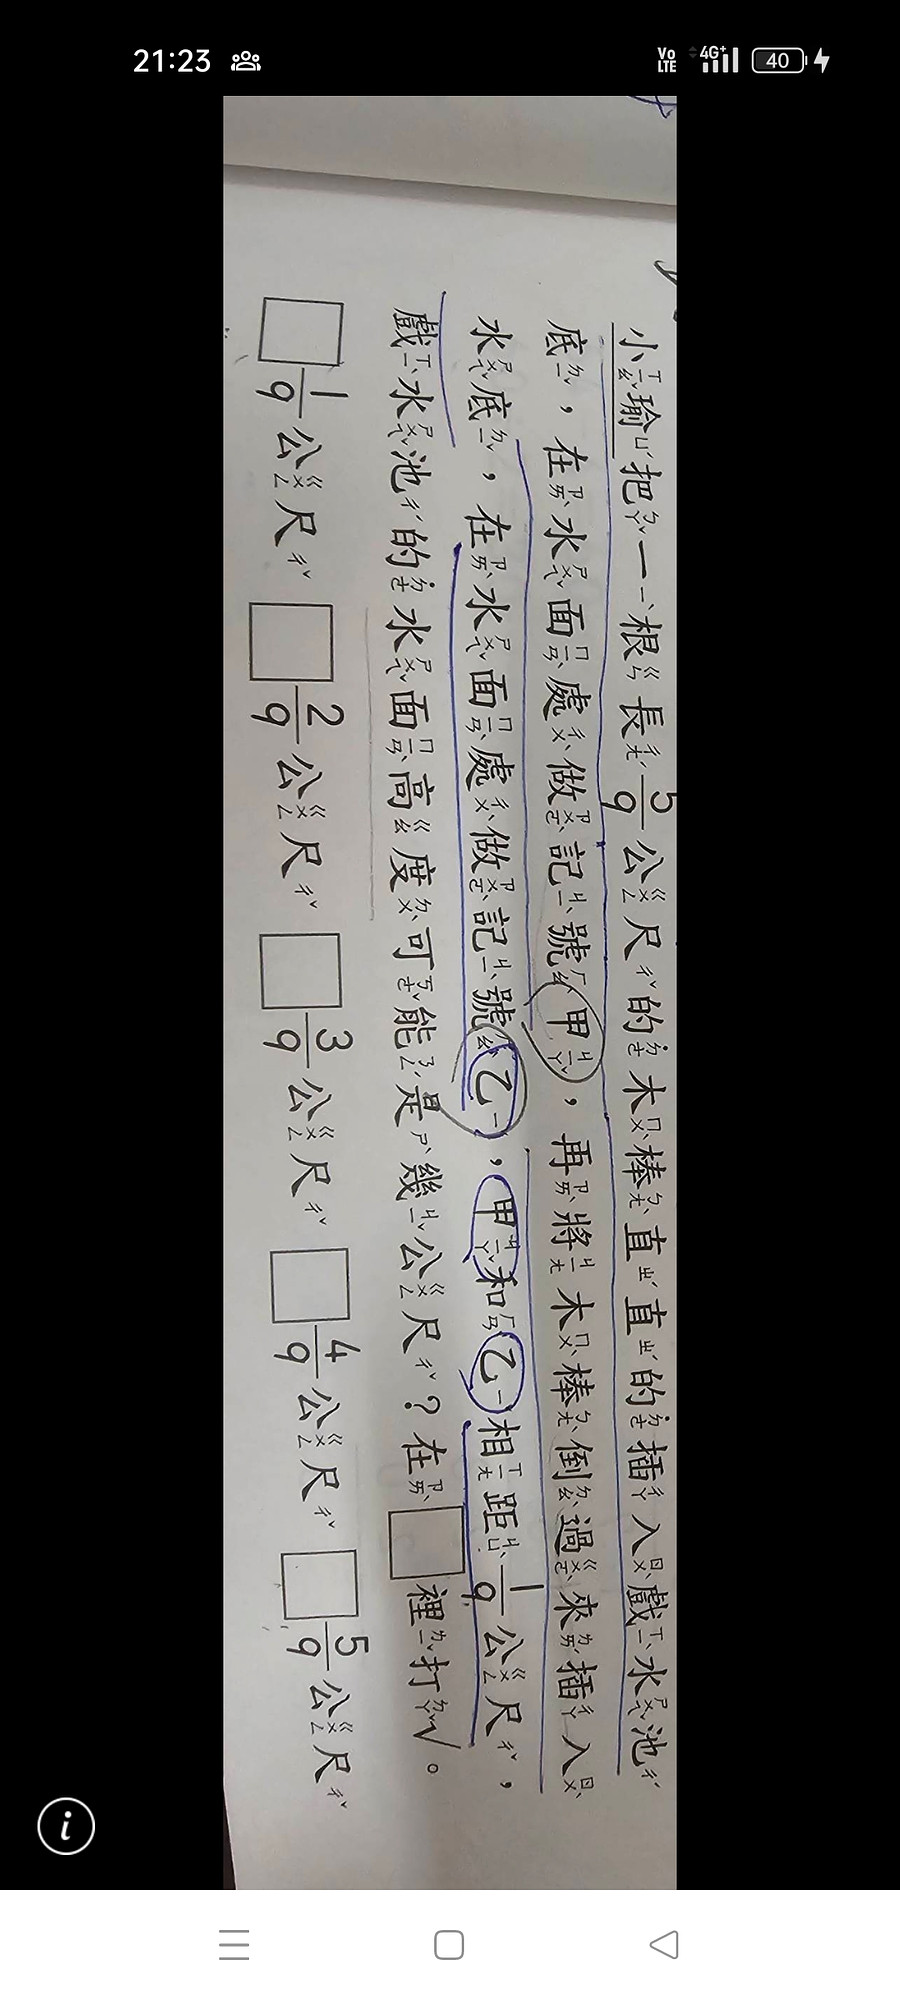 21:23
Vo LTE 4G+ 40
小瑜把一根長5/9公尺的木棒直直的插入戲水池
底，在水面處做記號甲，再將木棒倒過來插入
水底，在水面處做記號乙，甲和乙相距1/9公尺，
戲水池的水面高度可能是幾公尺？在□裡打√。
□1/9公尺 □2/9公尺 □3/9公尺 □4/9公尺 □5/9公尺
i